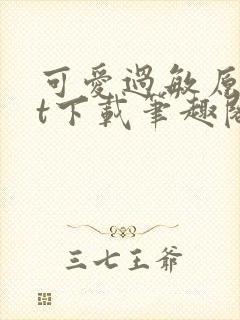 可愛過敏原
t下載筆趣閣
三七王爺